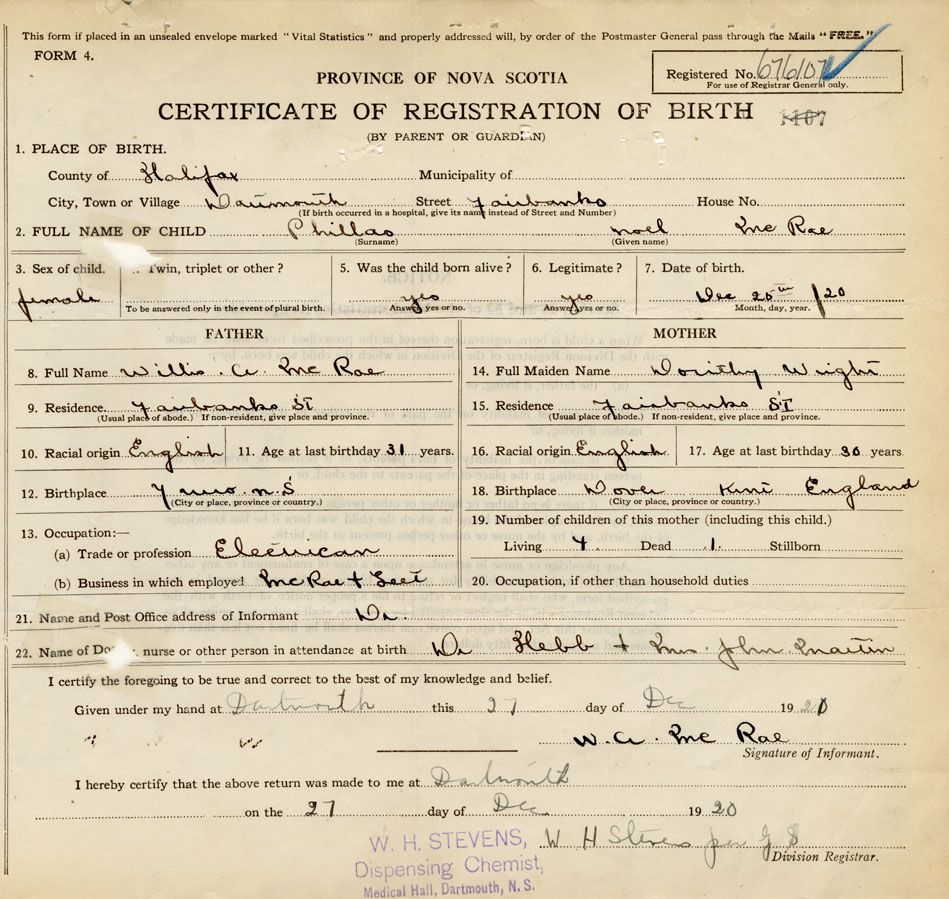 This form if placed in an unsealed envelope marked "Vital Statistics" and properly addressed will, by order of the Postmaster General pass through the Mails "FREE."
FORM 4.
Registered No. 676107
For use of Registrar General only.
PROVINCE OF NOVA SCOTIA
CERTIFICATE OF REGISTRATION OF BIRTH
(BY PARENT OR GUARDIAN)
1. PLACE OF BIRTH.
County of Halifax Municipality of
City, Town or Village Dartmouth Street Fairbanks House No.
(If birth occurred in a hospital, give its name instead of Street and Number)
2. FULL NAME OF CHILD Phillas noel Mc Rae
(Surname) (Given name)
3. Sex of child. Twin, triplet or other? 5. Was the child born alive? 6. Legitimate? 7. Date of birth.
female yes yes Dec 25th /20
To be answered only in the event of plural birth. Answer yes or no. Answer yes or no. Month, day, year.
FATHER MOTHER
8. Full Name Willis. A. Mc Rae 14. Full Maiden Name Dorithy Wright
9. Residence. Fairbanks ST 15. Residence Fairbanks ST
(Usual place of abode.) If non-resident, give place and province. (Usual place of abode.) If non-resident, give place and province.
10. Racial origin English 11. Age at last birthday 31 years. 16. Racial origin English 17. Age at last birthday 30 years
12. Birthplace n.S 18. Birthplace Dover Kent England
(City or place, province or country.) (City or place, province or country.)
19. Number of children of this mother (including this child.)
13. Occupation:—
(a) Trade or profession Electrican Living 4. Dead 1. Stillborn
(b) Business in which employed Mc Rae + 20. Occupation, if other than household duties
21. Name and Post Office address of Informant Dr.
22. Name of Doc nurse or other person in attendance at birth Dr Hebb + Mrs. John Martin
I certify the foregoing to be true and correct to the best of my knowledge and belief.
Given under my hand at Dartmouth this 27 day of Dec 19 20
W. A. Mc Rae
Signature of Informant.
I hereby certify that the above return was made to me at Dartmouth
on the 27 day of Dec 19 20
W. H. STEVENS, W H Stevens per G S
Dispensing Chemist, Division Registrar.
Medical Hall, Dartmouth, N. S.